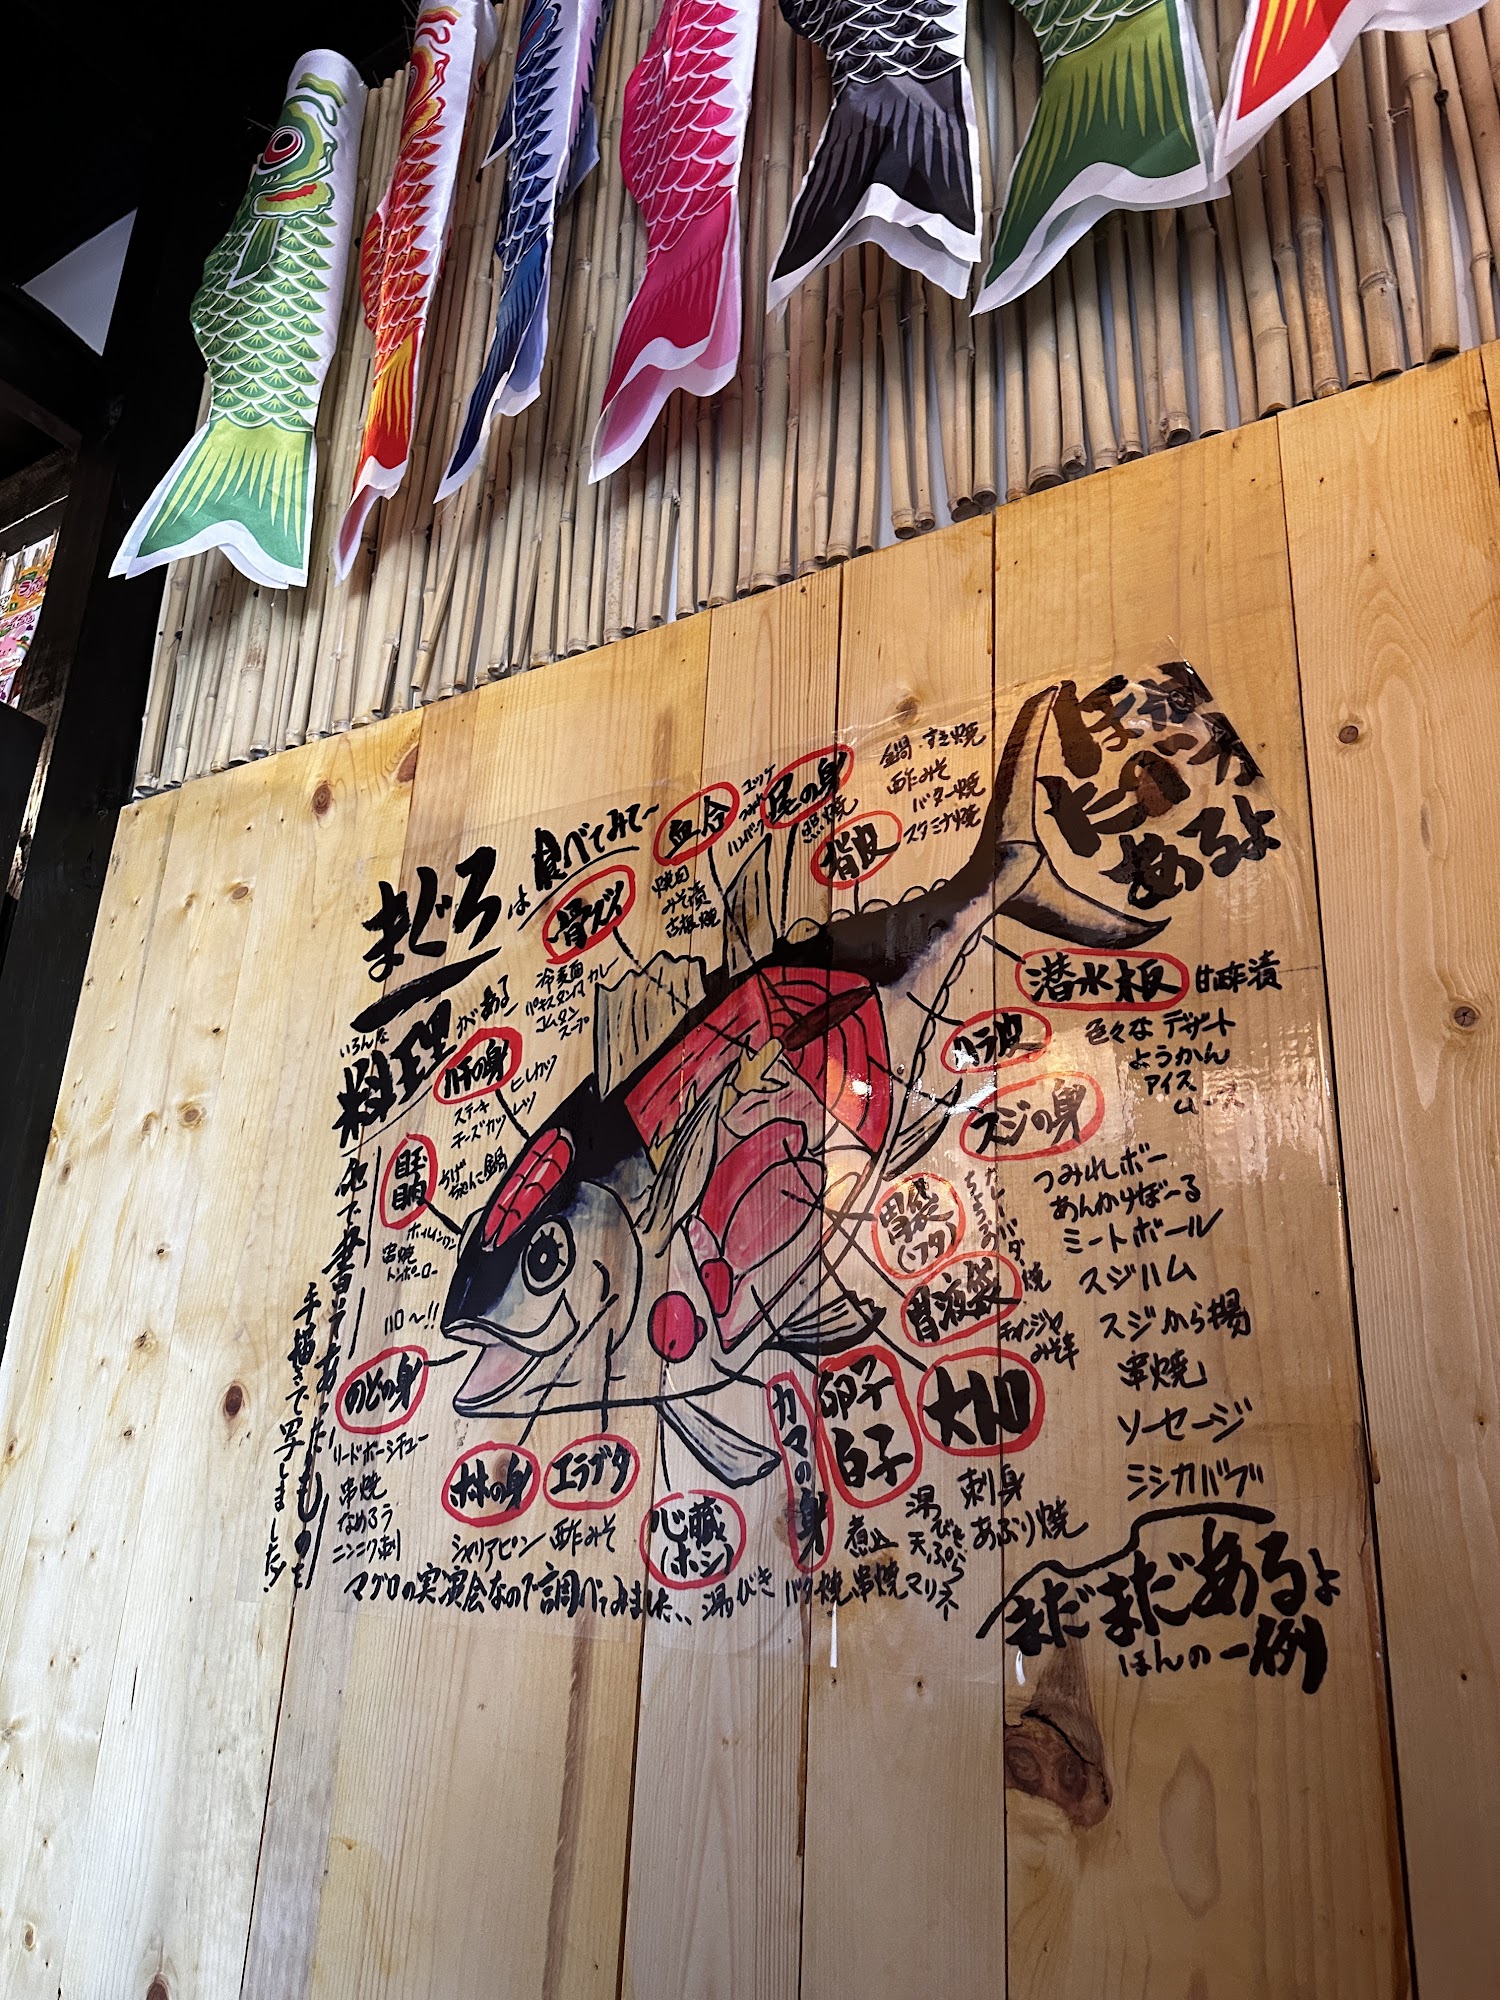 まぐろは食べてみて〜
いろんな
料理がある
ハチの身
ヒレカツ
ステーキ
チーズカツレツ
ちげ
ちゃんこ鍋
目玉
目肉
串焼
ハロ〜!!
のどの身
串焼
なめろう
ニンニク刺
ホホの身
エラブタ
酢みそ
心臓
(ホシ)
湯びき
カマの身
バター焼
卵子
白子
煮込
串焼
湯びき
天ぷら
マリネ
大トロ
刺身
あぶり焼
骨ズイ
冷麦面
カレー
スープ
血合
焼肉
みそ漬
ユッケ
ハンバーグ
尾の身
照焼
背皮
鍋 すき焼
酢みそ
バター焼
スタミナ焼
あるよ
潜水板
甘酢漬
色々なデザート
ようかん
アイス
ムース
ハラ皮
スジの身
つみれボー
あんかけぼーる
ミートボール
スジハム
スジから揚
串焼
ソーセージ
ミシカバブ
胃袋
(ワタ)
胃液袋
チャンジャ
みそ
まだまだあるよ
ほんの一例
マグロの実演会なので調べてみました、
手描きで写しました!